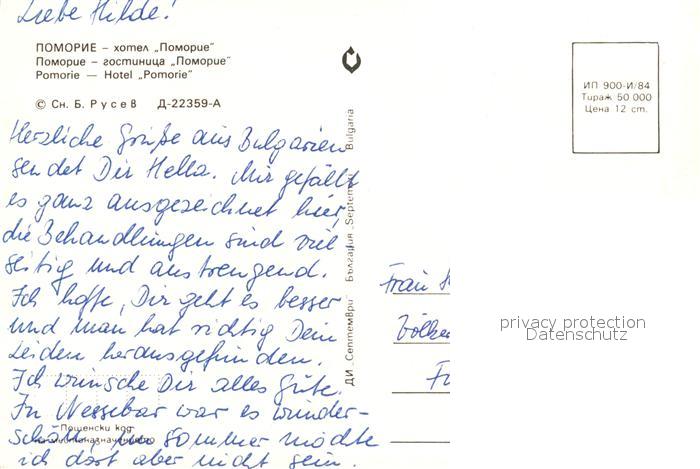 Liebe Hilde!
ПОМОРИЕ – хотел „Поморие"
Поморие – гостиница „Поморие"
Pomorie — Hotel „Pomorie"
© Сн. Б. Русев Д-22359-А
Herzliche Grüße aus Bulgarien
sendet Dir Hella. Mir gefällt
es ganz ausgezeichnet hier,
die Behandlungen sind viel
seitig und anstrengend.
Ich hoffe, Dir geht es besser
und man hat richtig Dein
Leiden herausgefunden.
Ich wünsche Dir alles Gute.
In Nessebar war es wunder-
schön, im Sommer möchte
ich dort aber nicht sein.
Пощенски код
местоназначението
ДИ „Септември" България „Septemvri" Bulgaria
ИП 900-И/84
Тираж 50 000
Цена 12 ст.
Frau
privacy protection
Datenschutz